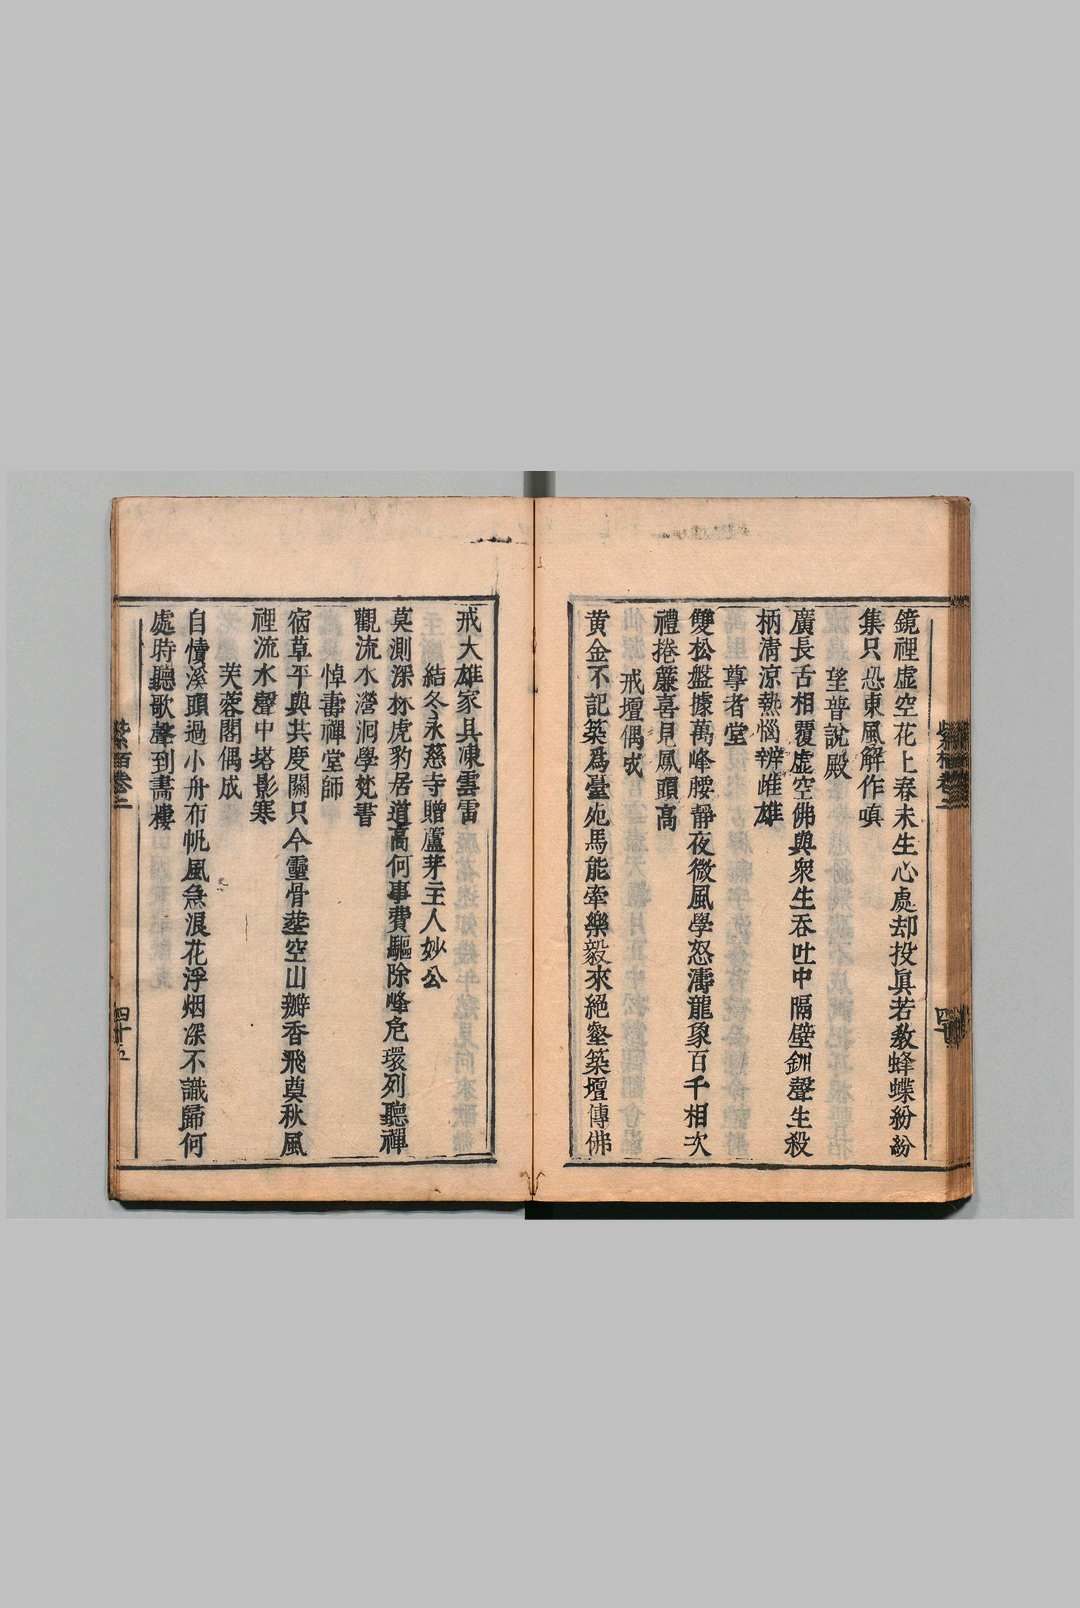 鏡裡虛空花上春未生心處却投眞若教蜂蝶紛紛
集只恐東風解作嗔
望普說殿
廣長舌相覆虛空佛與衆生吞吐中隔壁釧聲生殺
柄清涼熱惱辨雌雄
尊者堂
雙松盤據萬峰腰靜夜微風學怒濤龍象百千相次
禮捲簾喜見鳳頭高
戒壇偶成
黃金不記築爲臺死馬能牽樂毅來絕壑築壇傳佛
戒大雄家具凍雲雷
結冬永慈寺贈蘆芽主人妙公
莫測深林虎豹居道高何事費驅除峰危環列聽禪
觀流水瀠洄學梵書
悼壽禪堂師
宿草平與共度關只今靈骨塟空山瓣香飛奠秋風
裡流水聲中塔影寒
芙蓉閣偶成
自憤溪頭過小舟布帆風急浪花浮烟深不識歸何
處時聽歌聲到畵樓
紫栢卷二
四十五